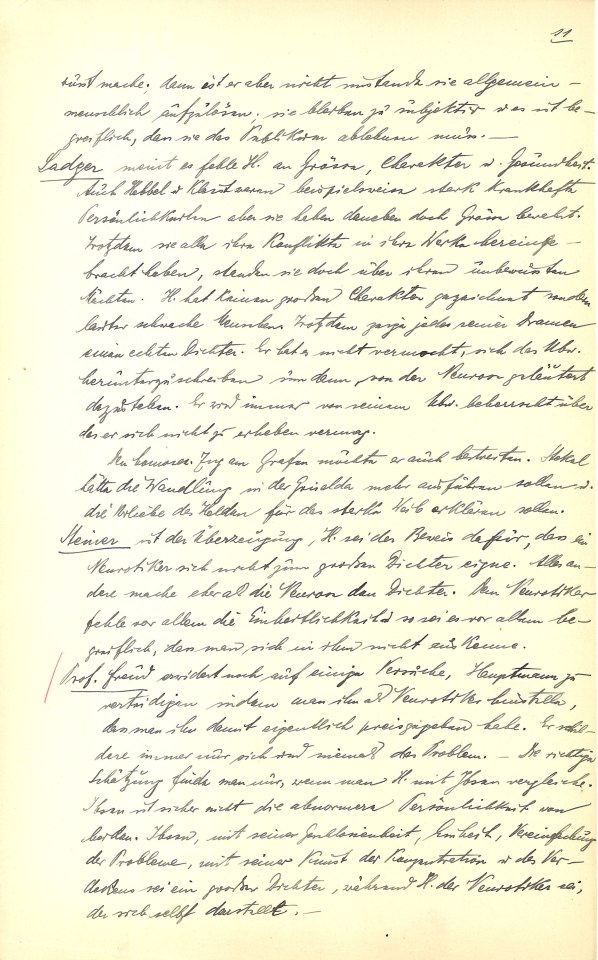 11
wüst mache; dann ist er aber nicht imstande sie allgemein-
menschlich aufzulösen; sie bleiben zu subjektiv u es ist be-
greiflich, dass sie das Publikum ablehnen muss. —
Sadger meint es fehle H. an Grösse, Charakter u. Gesundheit.
Auch Hebbel u Kleist waren beispielsweise stark krankhafte
Persönlichkeiten aber sie haben daneben doch Grösse bewahrt.
Trotzdem sie alle ihre Konflikte in ihre Werke hereinge-
bracht haben, standen sie doch über ihren unbewussten
Mächten. H. hat keinen grossen Charakter gezeichnet sondern
lauter schwache Menschen. Trotzdem zeige jedes seiner Dramen
einen echten Dichter. Er hat es nicht vermocht, sich das Ubw.
herunterzuschreiben um dann, von der Neurose geläutert
dazustehen. Er wird immer von seinem Ubw. beherrscht über
das er sich nicht zu erheben vermag.
Den Zug am Grafen möchte er auch bestreiten. Stekel
hätte die Wandlung in der Griselda mehr ausführen sollen u.
die Vorliebe des Helden für das starke Weib erklären sollen.
Steiner ist der Überzeugung, H. sei der Beweis dafür, dass ein
Neurotiker sich nicht zum grossen Dichter eigne. Alles an-
dere mache eher als die Neurose den Dichter. Dem Neurotiker
fehle vor allem die Einheitlichkeit u so sei es vor allem be-
greiflich, dass man sich in ihm nicht auskenne.
Prof. Freud erwidert noch auf einige Versuche, Hauptmann zu
verteidigen indem man ihn als Neurotiker hinstelle,
dass man ihn damit eigentlich preisgegeben habe. Er schil-
dere immer nur sich und niemals das Problem. — Die richtige
Schätzung finde man nur, wenn man H. mit Ibsen vergleiche.
Ibsen ist sicher nicht die abnormere Persönlichkeit von
beiden. Ibsen, mit seiner Geschlossenheit, Einheit, Vereinfachung
der Probleme, mit seiner Kunst der Konzentration u des Ver-
deckens sei ein grosser Dichter, während H. der Neurotiker sei,
der sich selbst darstellt. —